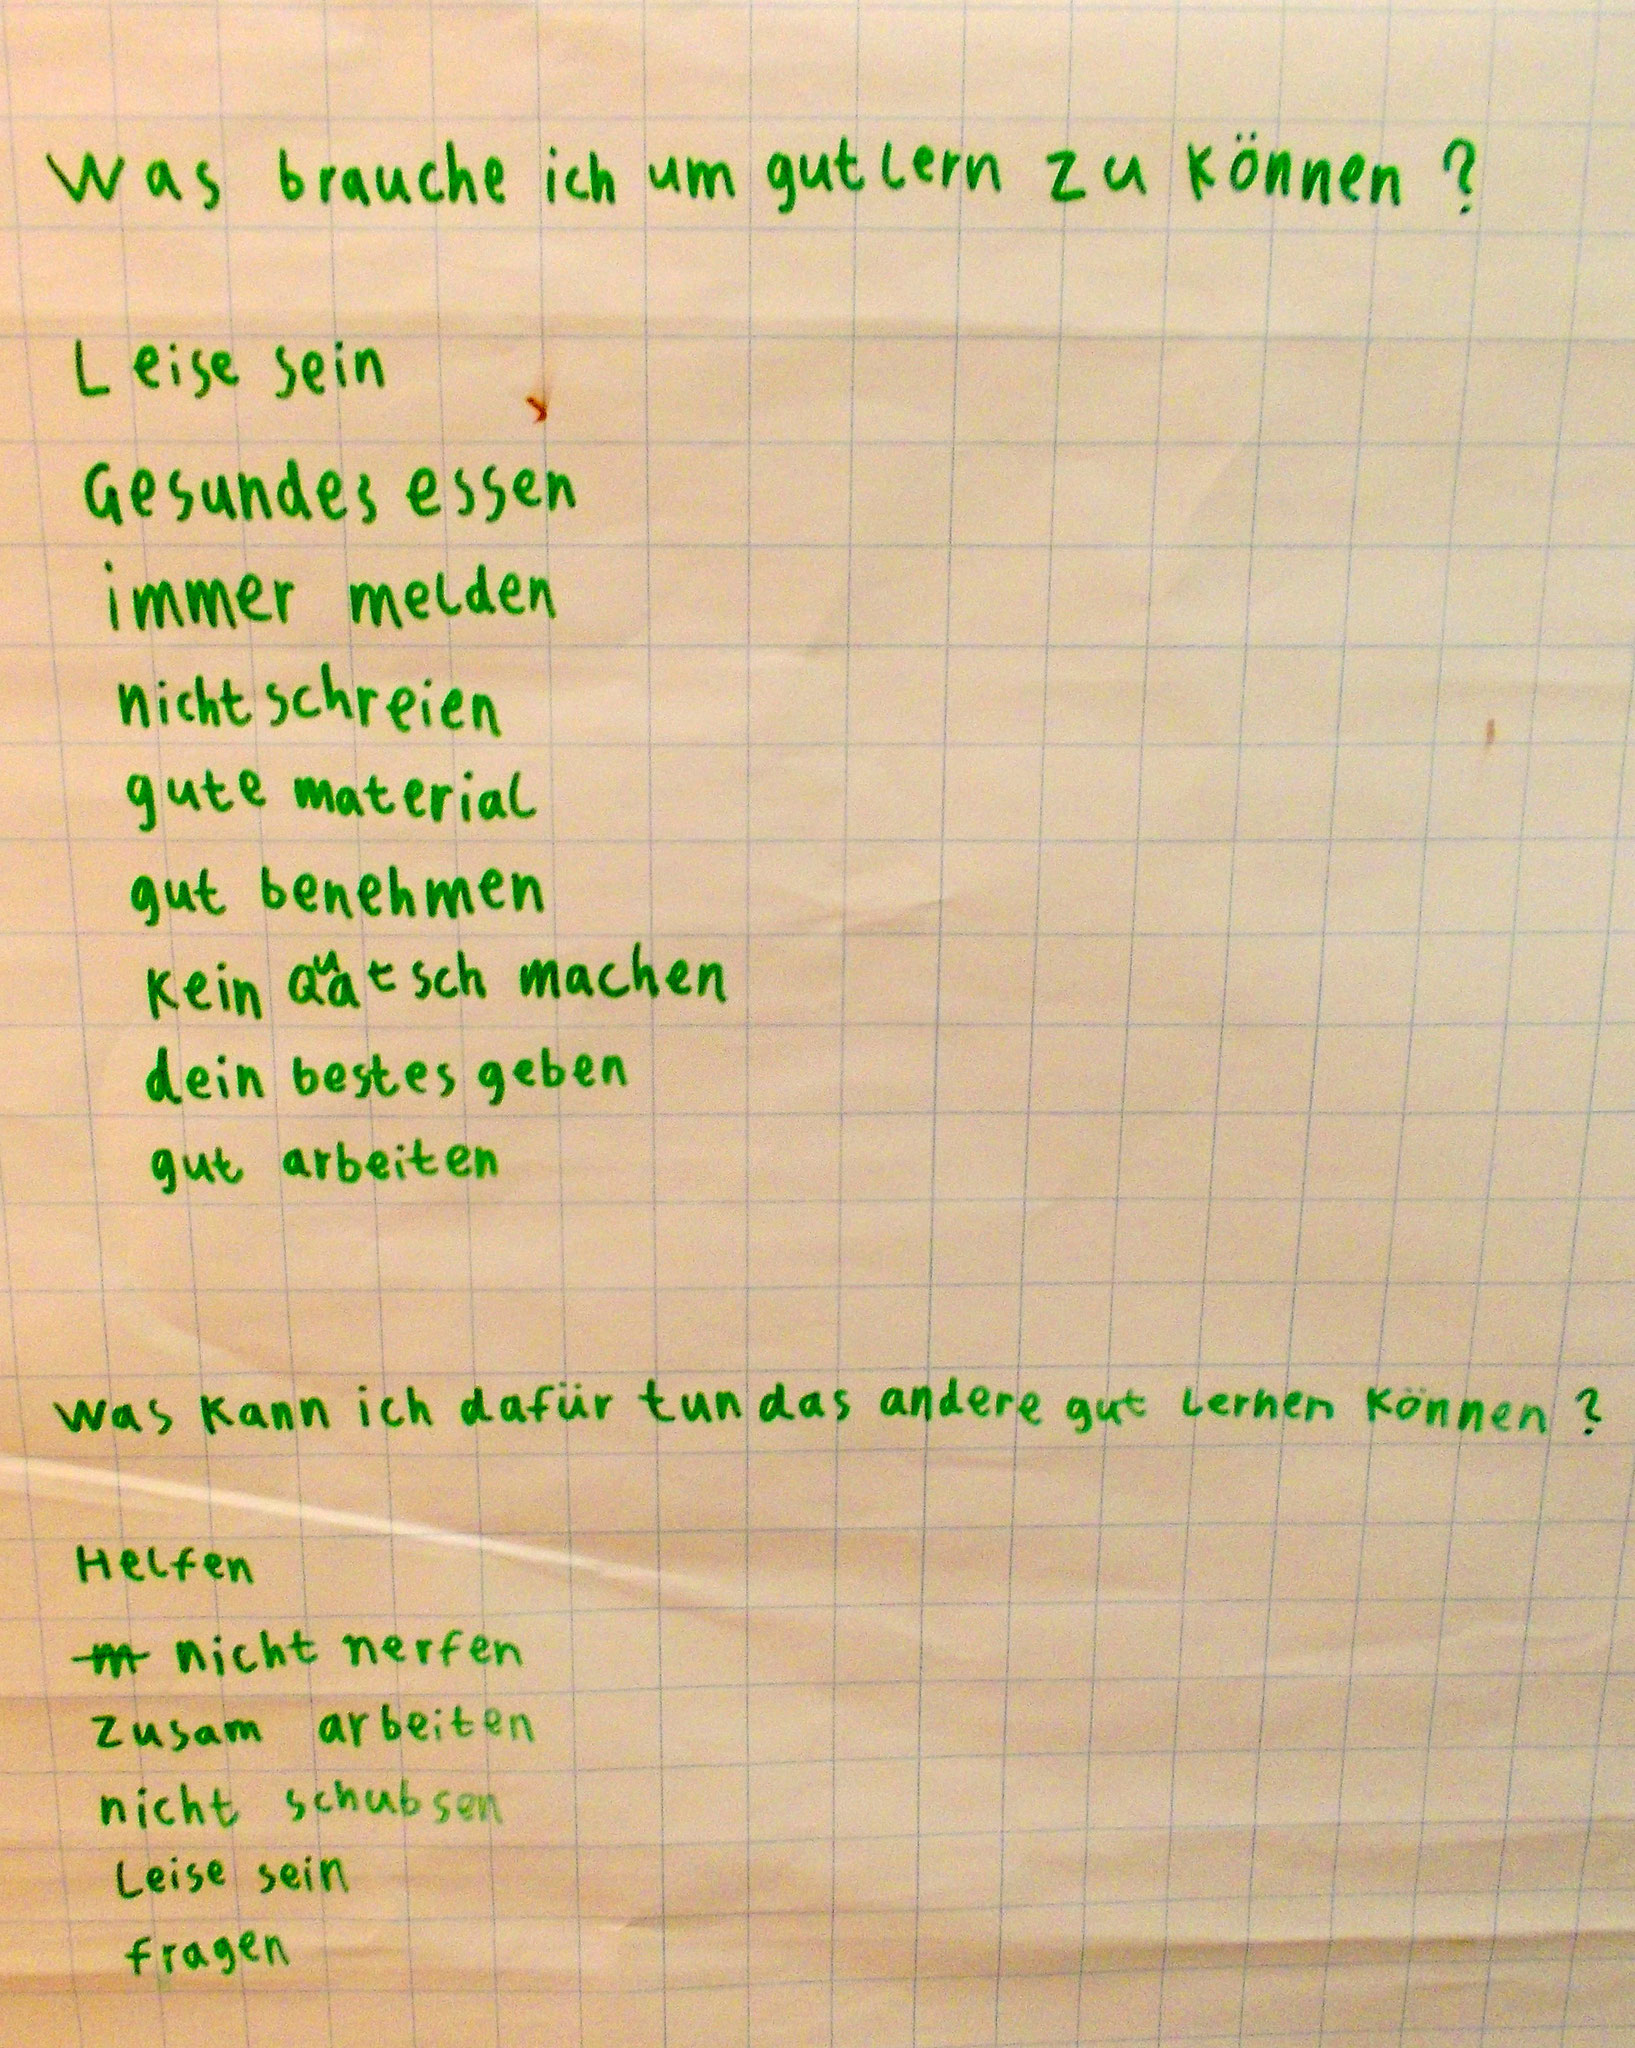 Was brauche ich um gut lern zu können?
Leise sein
Gesundes essen
immer melden
nicht schreien
gute material
gut benehmen
kein Quatsch machen
dein bestes geben
gut arbeiten
Was kann ich dafür tun das andere gut lernen können?
Helfen
nicht nerfen
zusam arbeiten
nicht schubsen
Leise sein
fragen